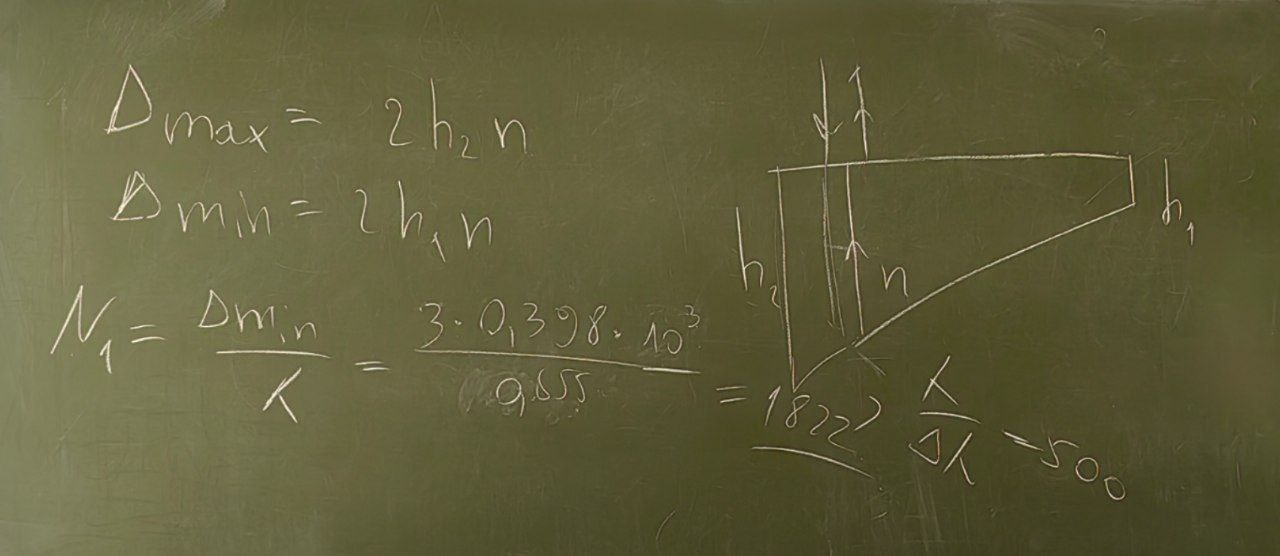 Δmax = 2h₂n
Δmin = 2h₁n
N₁ = Δmin / λ = 3·0,398·10³ / 0,655 = 1822 > λ / Δλ = 500
h₂
n
h₁